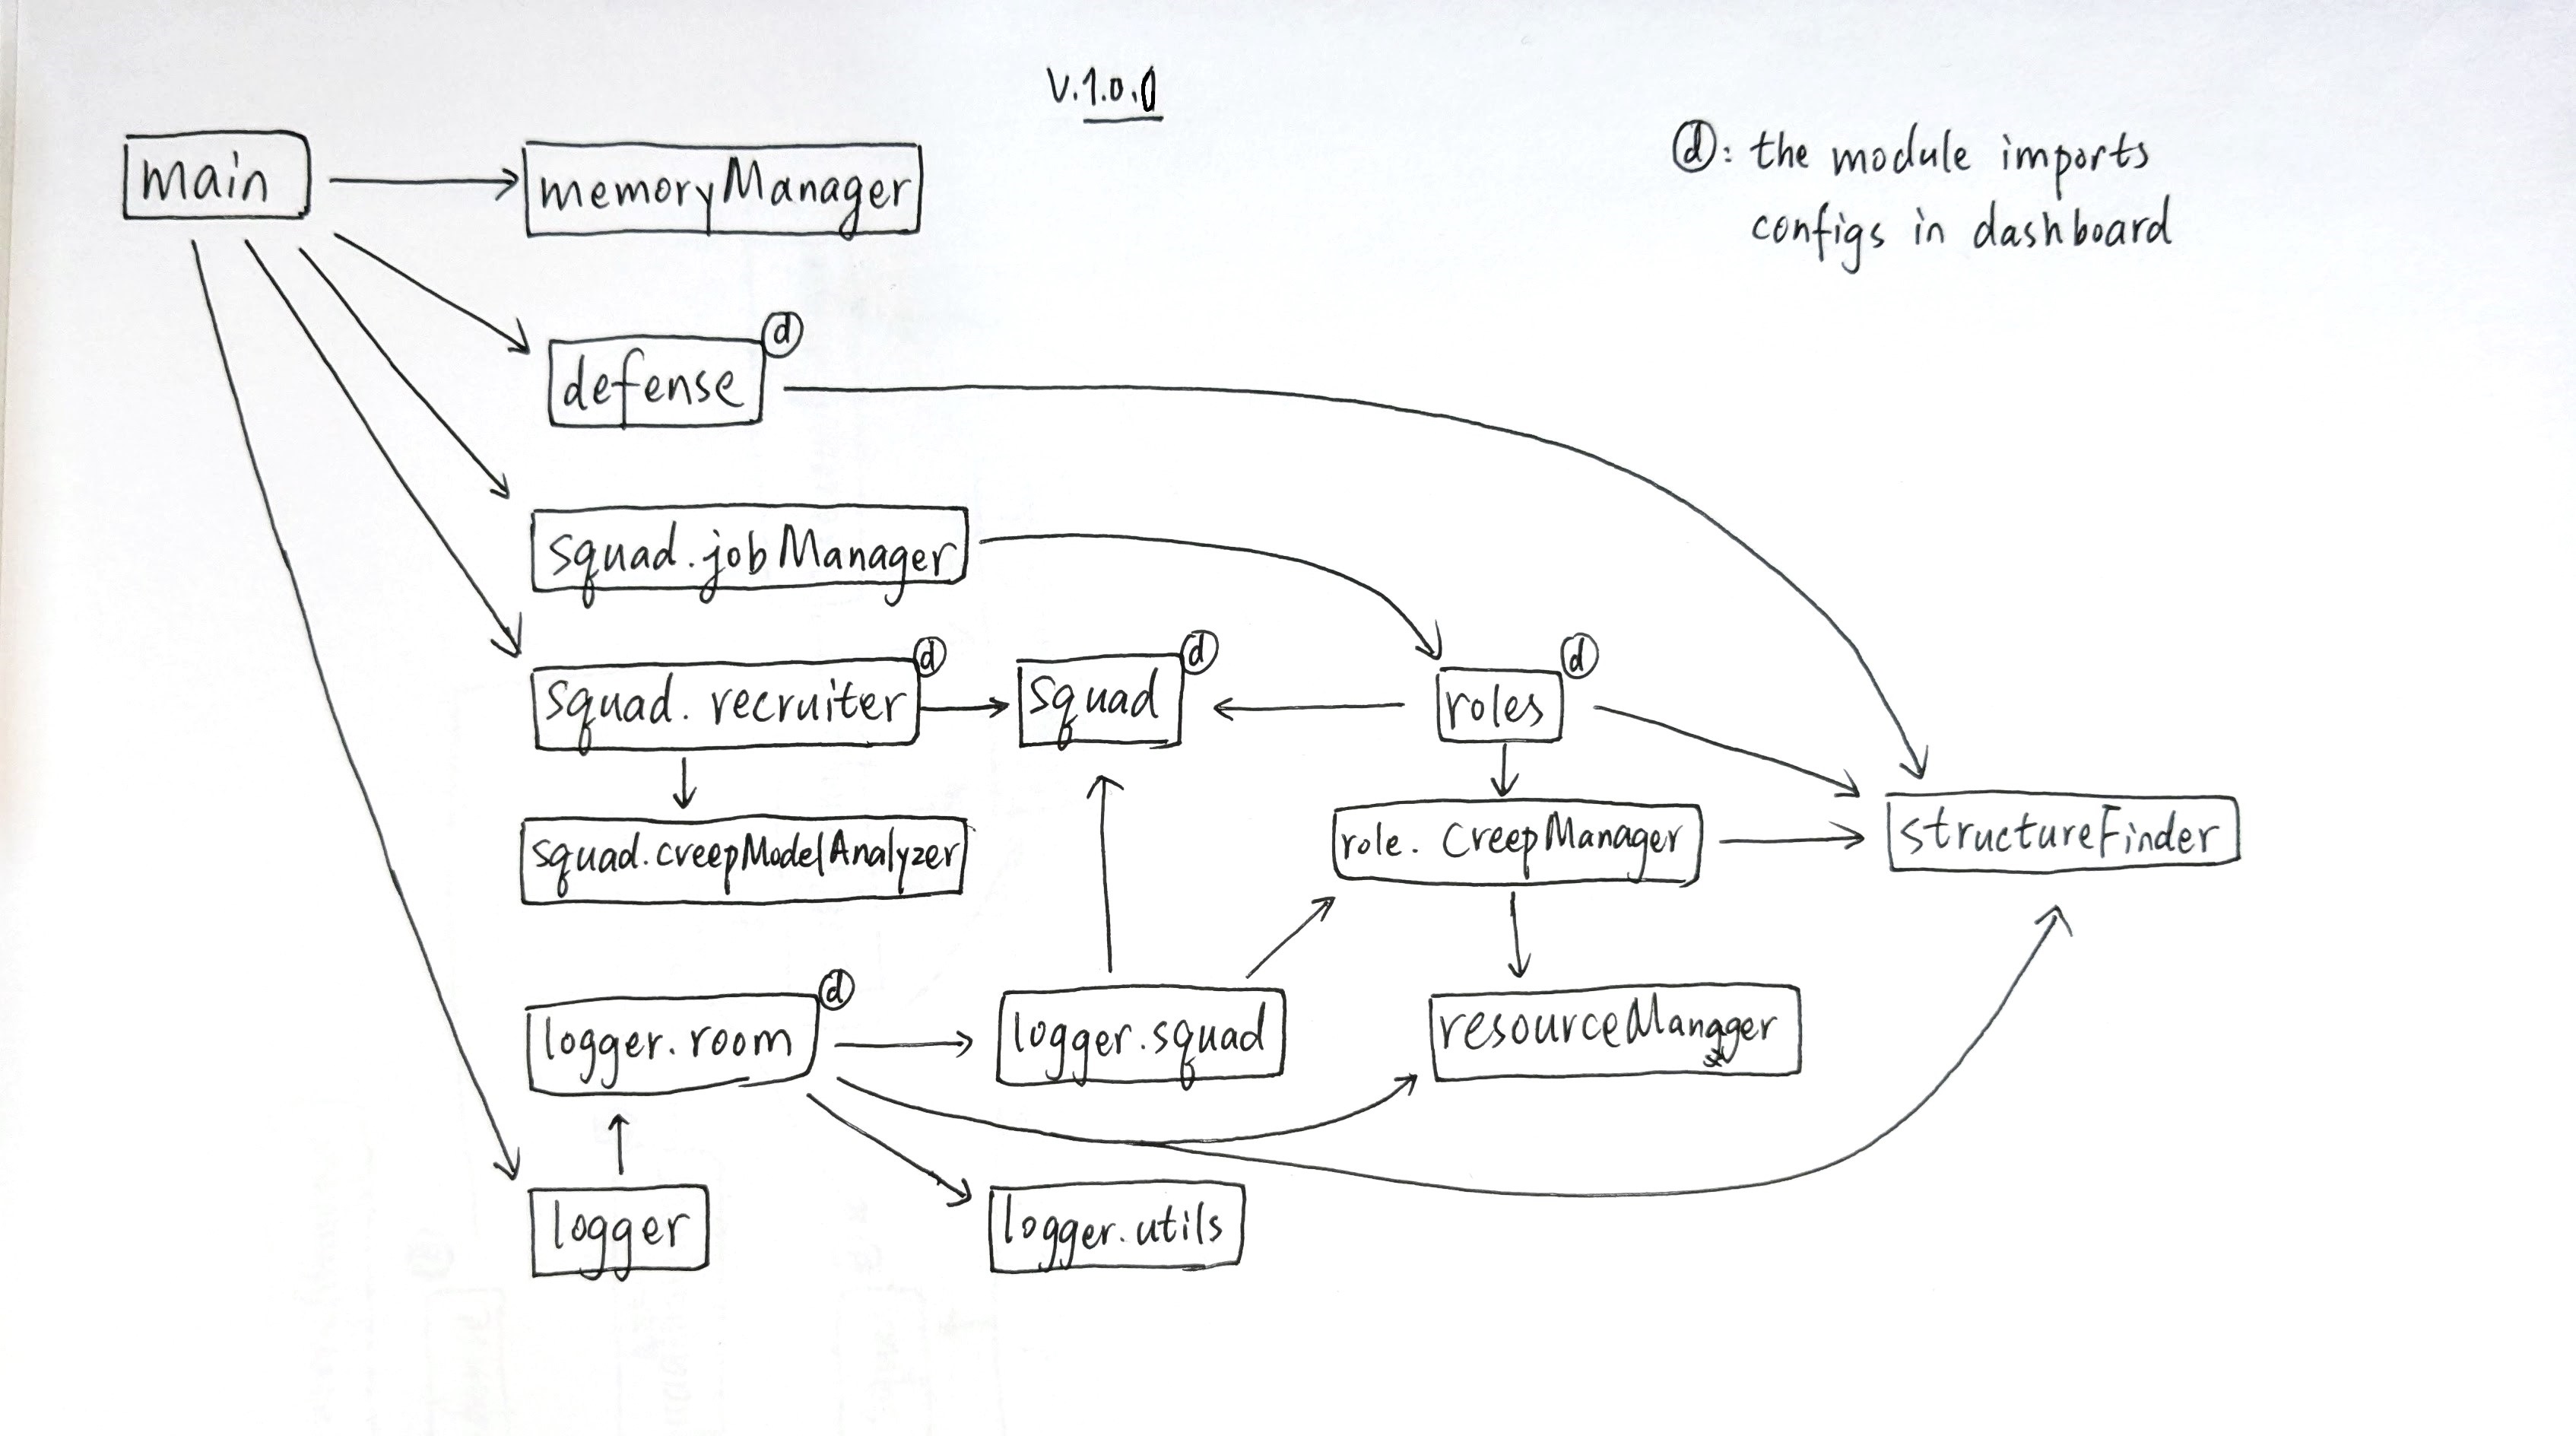 V.1.0.0
main
memoryManager
ⓓ: the module imports
configs in dashboard
defense
ⓓ
squad.jobManager
squad. recruiter
ⓓ
squad
ⓓ
roles
ⓓ
squad.creepModelAnalyzer
role. CreepManager
structureFinder
logger.room
ⓓ
logger.squad
resourceManager
logger
logger.utils